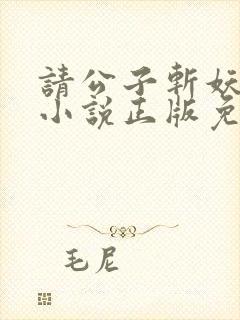 請公子斬妖
小說正版免
毛尼